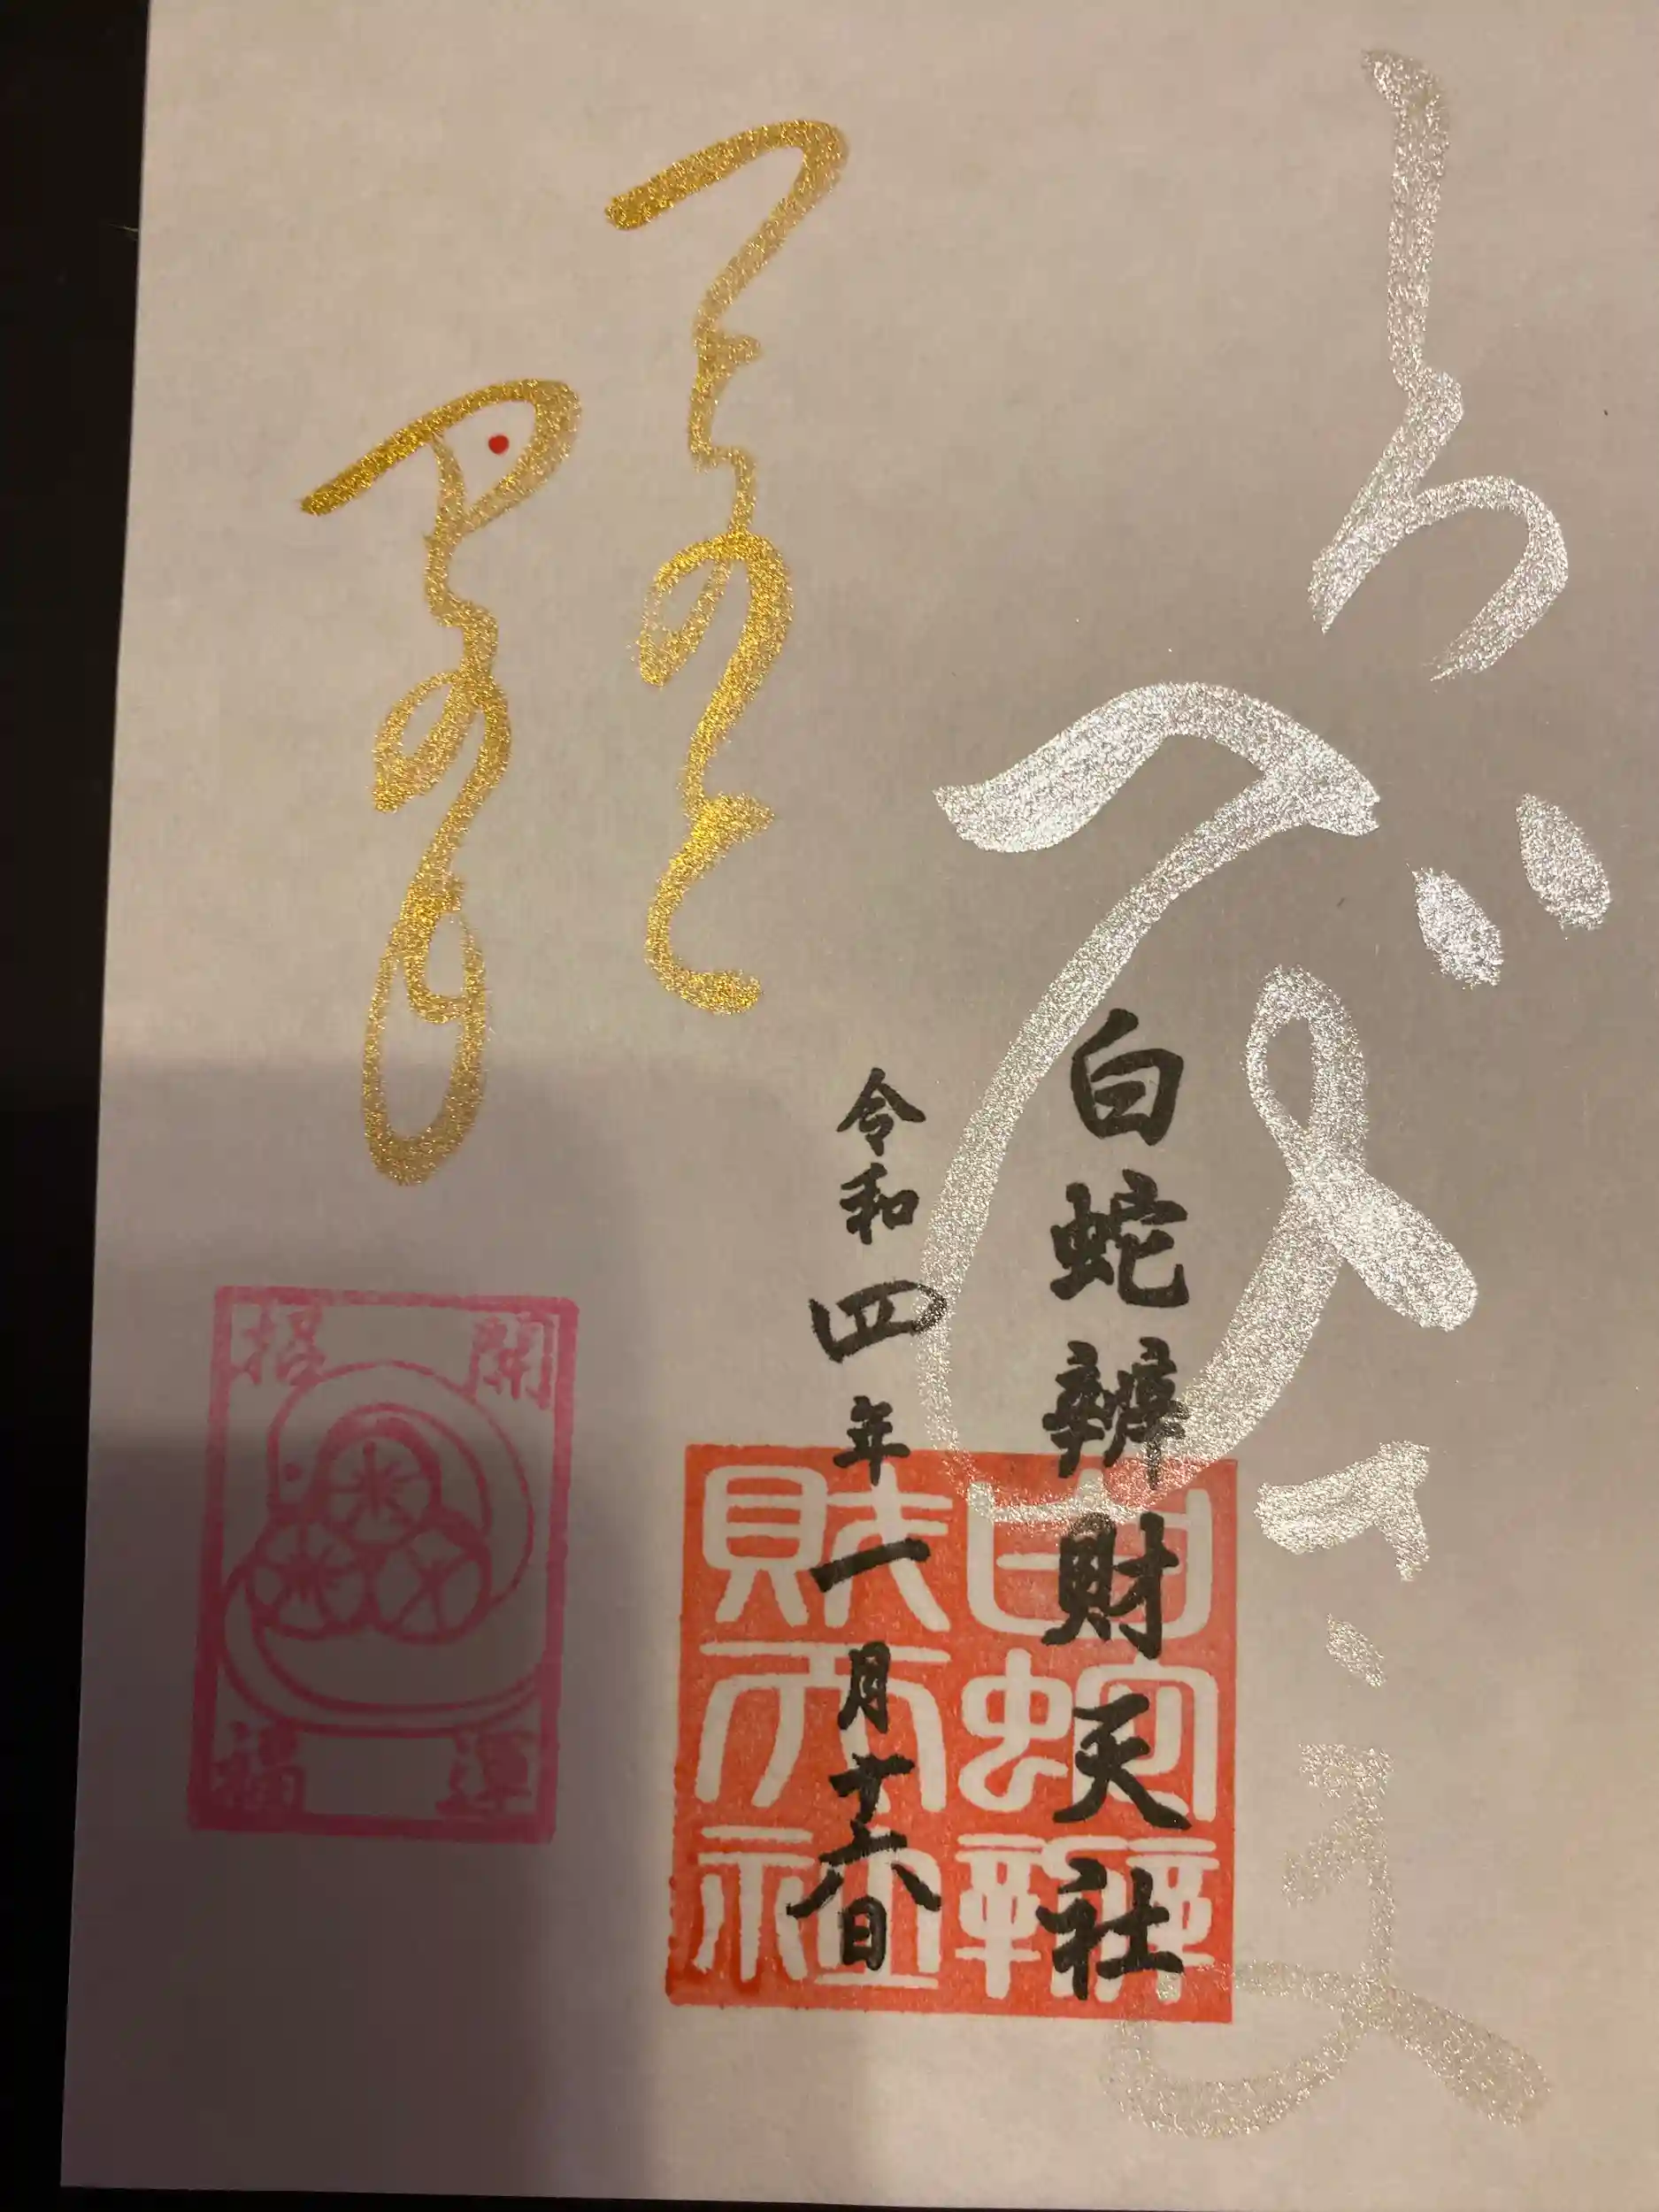 しろへびさま
白蛇辨財天社
令和四年一月十六日
白蛇辨
財天社
開運
招福